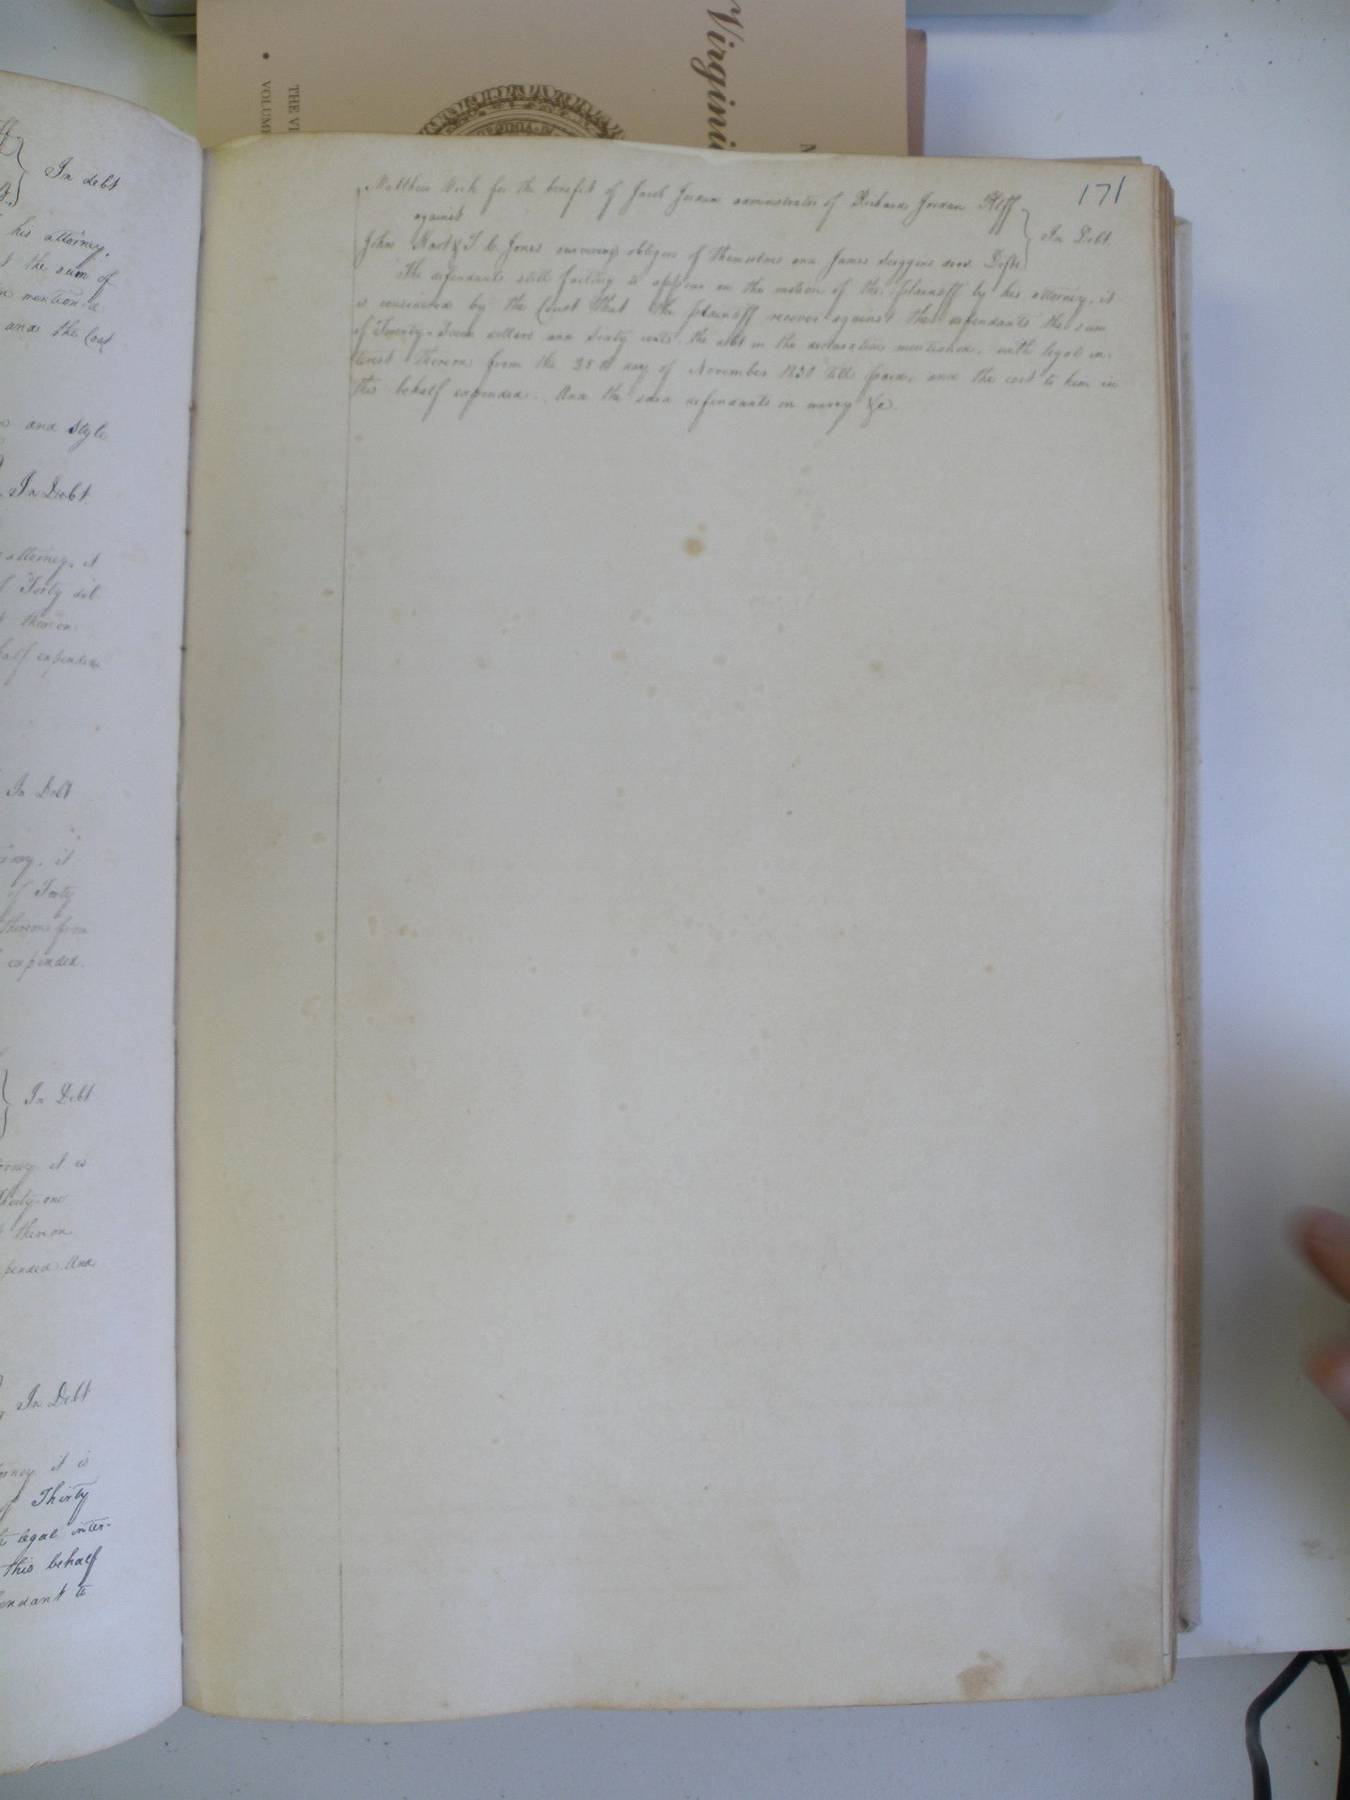 Virgini
THE VI
VOLUM
171
In debt
his attorney,
the sum of
in mention'd
and the Cost
and Style
In Debt.
attorney, it
Forty dol
thereon
half expended
In Debt
it
of Forty
thereon from
expended.
In Debt
it is
Thirty-one
thereon
And
In Debt
it is
Thirty
legal inter-
this behalf
to
for the benefit of Jacob Jordan administrator of Richard Jordan Pltff
against
In Debt.
John & T. C. Jones surviving obligors of themselves and James Scoggins decd. Defts
The defendants still failing to appear on the motion of the plaintiff by his attorney, it
is considered by the Court that the plaintiff recover against the defendants the sum
of Twenty-Seven dollars and Sixty cents, the debt in the declaration mentioned, with legal in-
terest thereon from the day of November 1830 till paid, and the cost to him in
this behalf expended. And the said defendants in mercy &c.